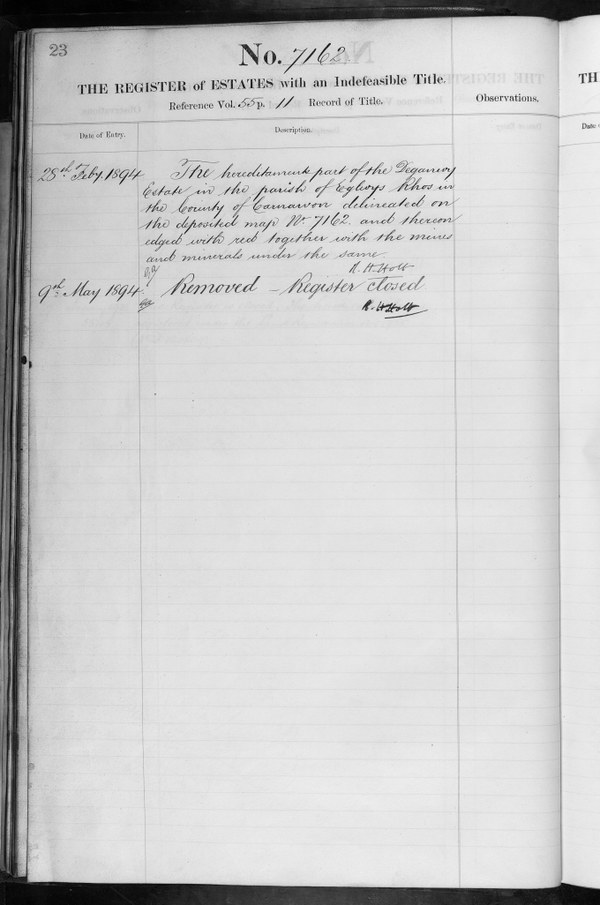 23
No. 7162
THE REGISTER of ESTATES with an Indefeasible Title.
Reference Vol. 55 p. 11 Record of Title.
Observations.
Date of Entry.
Description.
28th Feby 1894
The hereditaments part of the Deganwy
Estate in the parish of Eglwys Rhos in
the County of Carnarvon delineated on
the deposited map No. 7162 and thereon
edged with red together with the mines
and minerals under the same.
R. H. Holt
9th May 1894
Removed – Register closed
R. H. Holt
TH
Date